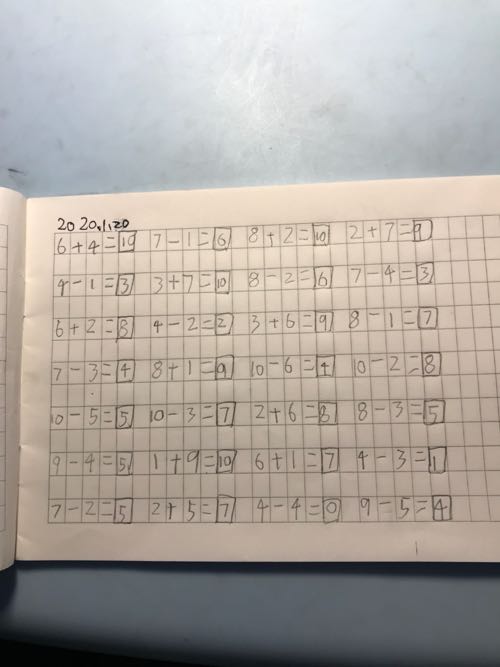 2020.1.20
6+4=10 7-1=6 8+2=10 2+7=9
4-1=3 3+7=10 8-2=6 7-4=3
6+2=8 4-2=2 3+6=9 8-1=7
7-3=4 8+1=9 10-6=4 10-2=8
10-5=5 10-3=7 2+6=8 8-3=5
9-4=5 1+9=10 6+1=7 4-3=1
7-2=5 2+5=7 4-4=0 9-5=4